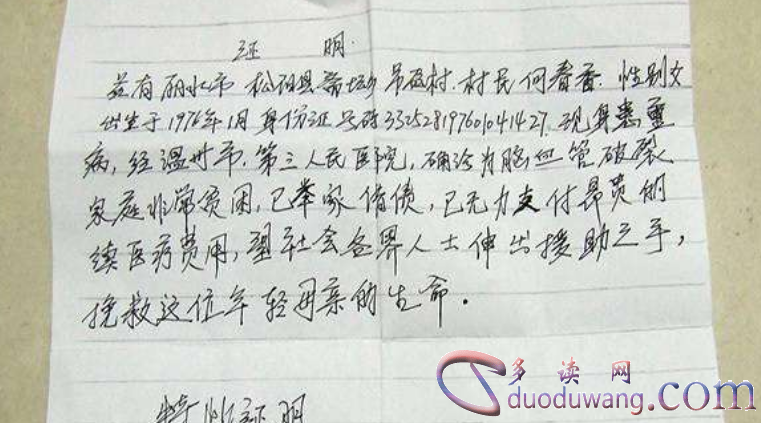 证 明
兹有丽水市 松阳县 村.村民何春香.性别女
出生于1976年1月身份证号码332528197601041427.现身患重
病,经温州市.第三人民医院,确诊为脑血管破裂
家庭非常贫困,已举家借债,已无力支付昂贵的
续医疗费用,望社会各界人士伸出援助之手,
挽救这位年轻母亲的生命.
特此证明
多读网
duoduwang.com